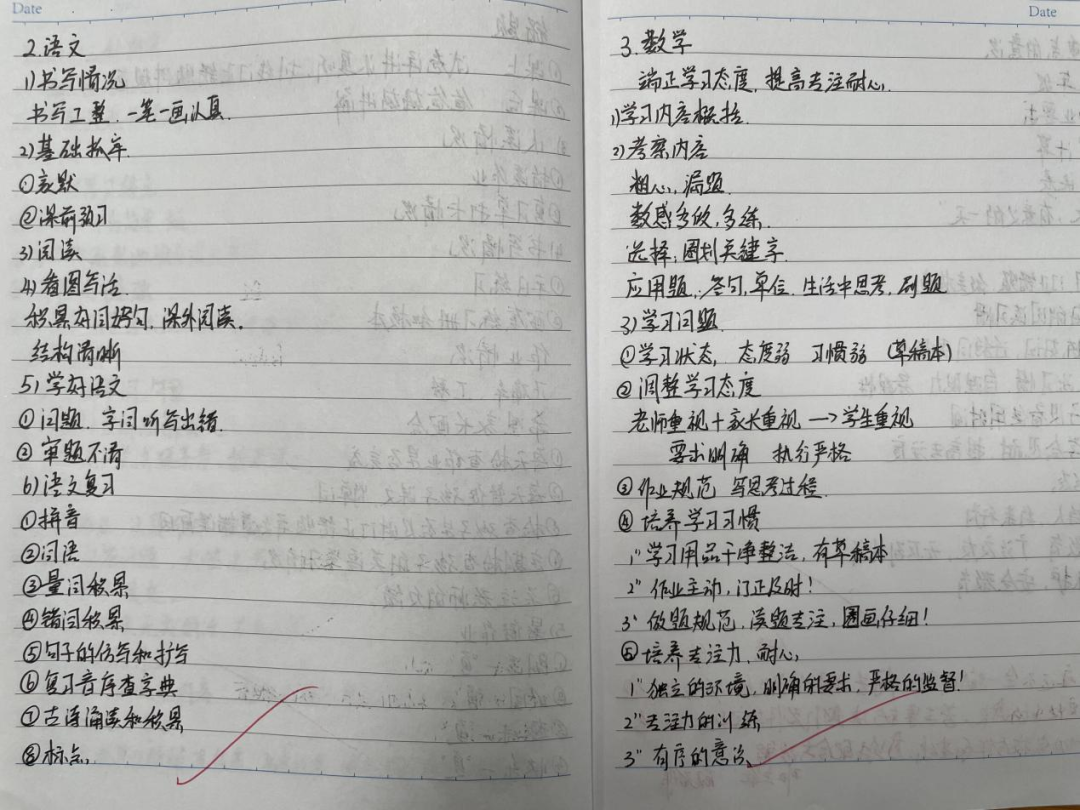 Date
2.语文
1)书写情况
书写工整,一笔一画认真.
2)基础抓牢
①家默
②课前预习
3)阅读
4)看图写话.
积累好词好句,课外阅读.
结构清晰
5)学好语文
①问题.字词听写出错.
②审题不清
6)语文复习
①拼音
②词语
③量词积累
④错词积累
⑤句子的仿写和扩写
⑥复习音序查字典
⑦古诗诵读和积累
⑧标点.
Date
3.数学
端正学习态度,提高专注耐心.
1)学习内容概括.
2)考察内容
粗心,漏题.
数感多做,多练.
选择,圈划关键字.
应用题,:答句,单位.生活中思考,刷题
3)学习问题.
①学习状态,态度弱 习惯弱 (草稿本)
②调整学习态度
老师重视+家长重视→学生重视
要求明确 执行严格
③作业规范 写思考过程.
④培养学习习惯
1"学习用品干净整洁,有草稿本
2"作业主动,订正及时!
3"做题规范,读题专注,圈画仔细!
⑤培养专注力,耐心,
1"独立的环境,明确的要求,严格的监督!
2"专注力的训练
3"有序的意识,